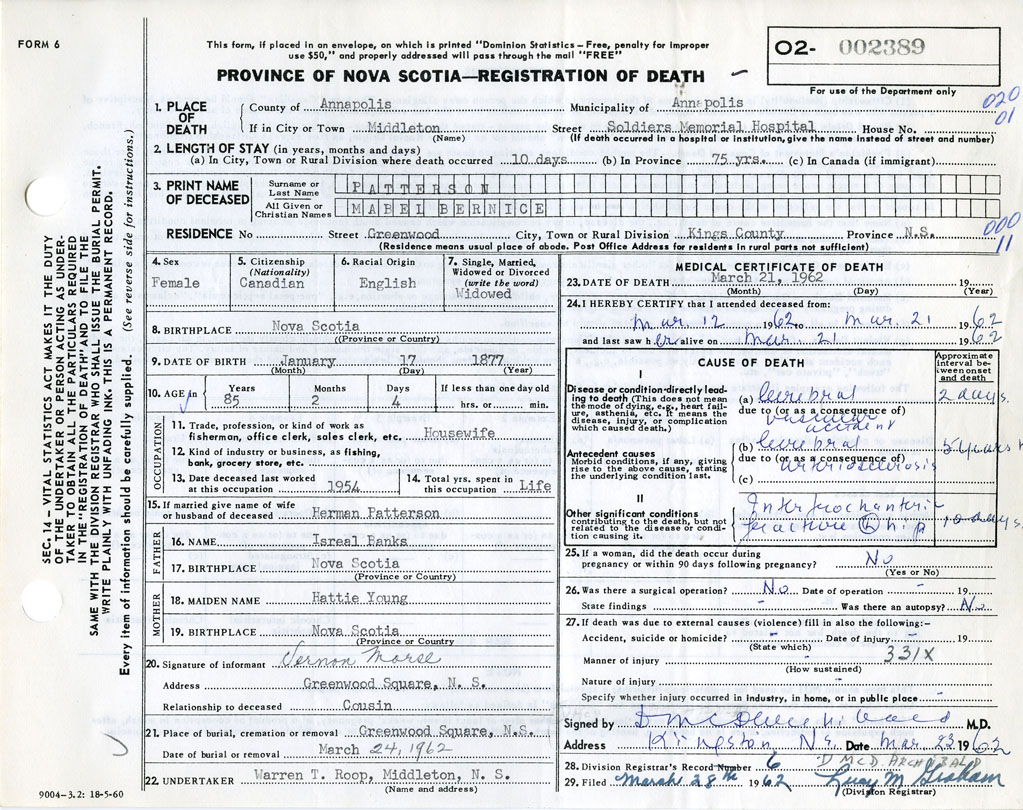 FORM 6
This form, if placed in an envelope, on which is printed "Dominion Statistics – Free, penalty for improper
use $50," and properly addressed will pass through the mail "FREE"
PROVINCE OF NOVA SCOTIA—REGISTRATION OF DEATH
02- 002389
For use of the Department only
020
01
1. PLACE OF DEATH
County of Annapolis Municipality of Annapolis
If in City or Town Middleton Street Soldiers Memorial Hospital House No.
(Name) (If death occurred in a hospital or institution, give the name instead of street and number)
2. LENGTH OF STAY (in years, months and days)
(a) In City, Town or Rural Division where death occurred 10 days (b) In Province 75 yrs. (c) In Canada (if immigrant)
3. PRINT NAME OF DECEASED
Surname or Last Name PATTERSON
All Given or Christian Names MABEL BERNICE
000
11
RESIDENCE No Street Greenwood City, Town or Rural Division Kings County Province N.S.
(Residence means usual place of abode. Post Office Address for residents in rural parts not sufficient)
4. Sex Female
5. Citizenship (Nationality) Canadian
6. Racial Origin English
7. Single, Married, Widowed or Divorced (write the word) Widowed
8. BIRTHPLACE Nova Scotia
(Province or Country)
9. DATE OF BIRTH January 17 1877
(Month) (Day) (Year)
10. AGE in Years 85 Months 2 Days 4 If less than one day old hrs. or min.
OCCUPATION
11. Trade, profession, or kind of work as
fisherman, office clerk, sales clerk, etc. Housewife
12. Kind of industry or business, as fishing,
bank, grocery store, etc.
13. Date deceased last worked at this occupation 1954
14. Total yrs. spent in this occupation Life
15. If married give name of wife
or husband of deceased Herman Patterson
FATHER
16. NAME Isreal Banks
17. BIRTHPLACE Nova Scotia
(Province or Country)
MOTHER
18. MAIDEN NAME Hattie Young
19. BIRTHPLACE Nova Scotia
(Province or Country)
20. Signature of informant Vernon Morse
Address Greenwood Square, N. S.
Relationship to deceased Cousin
21. Place of burial, cremation or removal Greenwood Square, N.S.
Date of burial or removal March 24, 1962
22. UNDERTAKER Warren T. Roop, Middleton, N. S.
(Name and address)
MEDICAL CERTIFICATE OF DEATH
23. DATE OF DEATH March 21, 1962 19
(Month) (Day) (Year)
24. I HEREBY CERTIFY that I attended deceased from:
Mar. 12 1962 to Mar. 21 1962
and last saw her alive on Mar. 21 1962
CAUSE OF DEATH
Approximate interval between onset and death
I
Disease or condition directly leading to death (This does not mean the mode of dying, e.g., heart failure, asthenia, etc. It means the disease, injury, or complication which caused death.)
(a) Cerebral 2 days.
due to (or as a consequence of)
vascular
accident
Antecedent causes
Morbid conditions, if any, giving rise to the above cause, stating the underlying condition last.
(b) Cerebral
due to (or as a consequence of)
arteriosclerosis
(c)
II
Other significant conditions
contributing to the death, but not related to the disease or condition causing it.
Intertrochanteric
fracture hip 10 days.
25. If a woman, did the death occur during
pregnancy or within 90 days following pregnancy? No
(Yes or No)
26. Was there a surgical operation? No Date of operation - 19
State findings - Was there an autopsy? No
27. If death was due to external causes (violence) fill in also the following:-
Accident, suicide or homicide? - Date of injury 19
(State which)
331X
Manner of injury
(How sustained)
Nature of injury -
Specify whether injury occurred in industry, in home, or in public place -
Signed by M.D.
Address Kingston N.S. Date Mar. 23 1962
D MCD ARCHIBALD
28. Division Registrar's Record Number 6
29. Filed March 28th 1962 Lucy M. Graham
(Division Registrar)
SEC. 14 – VITAL STATISTICS ACT MAKES IT THE DUTY
OF THE UNDERTAKER OR PERSON ACTING AS UNDER-
TAKER "TO OBTAIN ALL THE PARTICULARS REQUIRED
IN THE "REGISTRATION OF DEATH" AND TO FILE THE
SAME WITH THE DIVISION REGISTRAR WHO SHALL ISSUE THE BURIAL PERMIT.
WRITE PLAINLY WITH UNFADING INK. THIS IS A PERMANENT RECORD.
Every item of information should be carefully supplied. (See reverse side for instructions.)
9004-3.2: 18-5-60